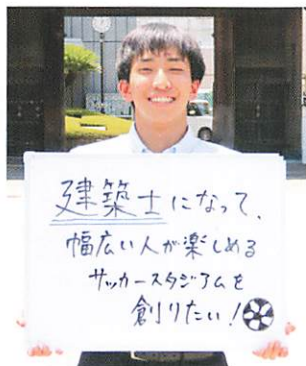 建築士になって、
幅広い人が楽しめる
サッカースタジアムを
創りたい！